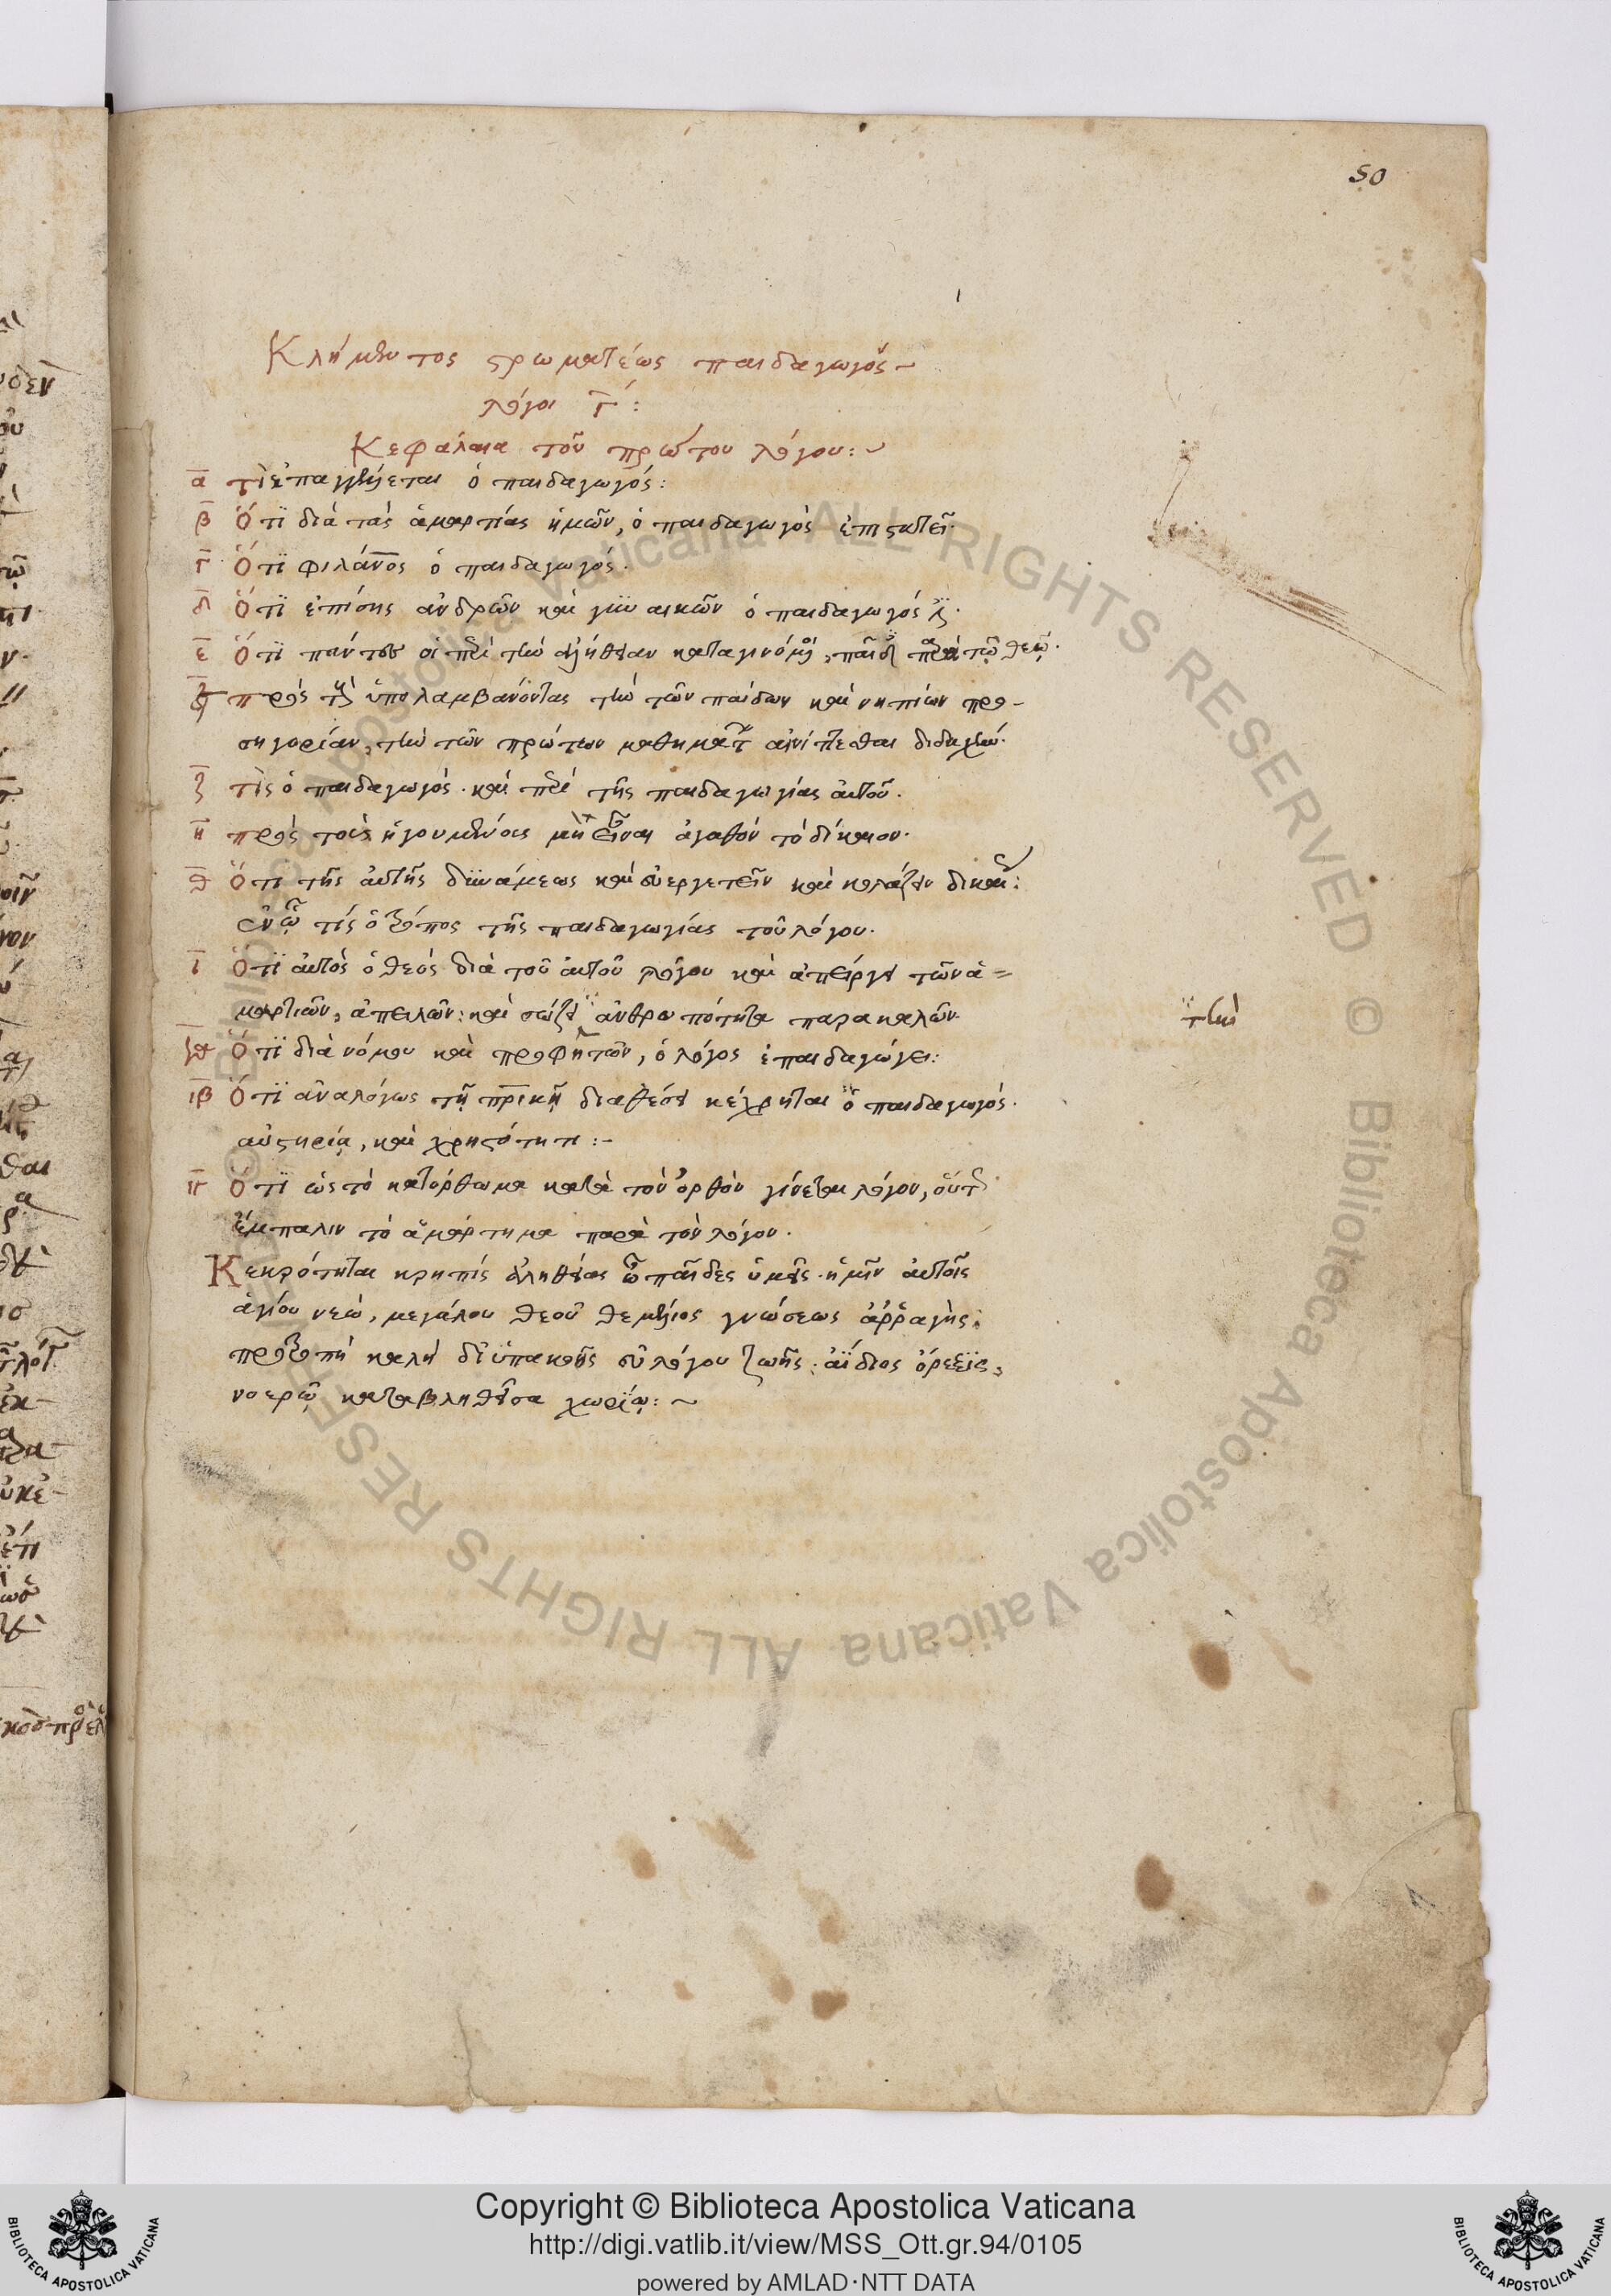 50
Κλήμεντος στρωματέως παιδαγωγός ~
λόγοι γ̅ :
Κεφάλαια τοῦ πρώτου λόγου: ~
α̅ τί ἐπαγγέλλεται ὁ παιδαγωγός:
β̅ Ὅτι διὰ τὰς ἁμαρτίας ἡμῶν, ὁ παιδαγωγὸς ἐπιστατεῖ·
γ̅ Ὅτι φιλάν̅ος ὁ παιδαγωγός.
δ̅ Ὅτι ἐπίσης ἀνδρῶν καὶ γυναικῶν ὁ παιδαγωγός ἐστι.
ε̅ Ὅτι πάντες οἱ περὶ τὴν ἀλήθειαν καταγινόμενοι, παῖδες παρὰ τῷ θεῷ.
ϛ̅ πρὸς τοὺς ὑπολαμβάνοντας τὴν τῶν παίδων καὶ νηπίων προ-
σηγορίαν, τὴν τῶν πρώτων μαθημάτων αἰνίττεσθαι διδαχήν.
ζ̅ τίς ὁ παιδαγωγός. καὶ περὶ τῆς παιδαγωγίας αὐτοῦ.
η̅ πρὸς τοὺς ἡγουμένους μὴ εἶναι ἀγαθὸν τὸ δίκαιον.
θ̅ Ὅτι τῆς αὐτῆς δυνάμεως καὶ εὐεργετεῖν καὶ κολάζειν δικαίως:
ἐν ᾧ τίς ὁ τρόπος τῆς παιδαγωγίας τοῦ λόγου.
ι̅ Ὅτι αὐτὸς ὁ θεὸς διὰ τοῦ αὐτοῦ λόγου καὶ ἀπείργει τῶν ἁ=
μαρτιῶν, ἀπειλῶν: καὶ σώζει ἀνθρωπότητα παρακαλῶν.
τὴν
ια̅ Ὅτι διὰ νόμου καὶ προφητῶν, ὁ λόγος ἐπαιδαγώγει:
ιβ̅ Ὅτι ἀναλόγως τῇ πρ̅ικῇ διαθέσει κέχρηται ὁ παιδαγωγός.
αὐστηρίᾳ, καὶ χρηστότητι: -
ιγ̅ Ὅτι ὡς τὸ κατόρθωμα κατὰ τὸν ὀρθὸν γίνεται λόγον, οὕτως
ἔμπαλιν τὸ ἁμάρτημα παρὰ τὸν λόγον.
Κεκρότηται κρηπὶς ἀληθείας ὦ παῖδες ὑμεῖς. ἡμῖν αὐτοῖς
ἁγίου νεὼ, μεγάλου θεοῦ θεμέλιος γνώσεως ἀῤῥαγής:
προτροπὴ καλὴ δι' ὑπακοῆς εὐλόγου ζωῆς: ἀΐδιος ὄρεξις,
νοερῷ καταβληθεῖσα χωρίῳ: ~
Copyright © Biblioteca Apostolica Vaticana
http://digi.vatlib.it/view/MSS_Ott.gr.94/0105
powered by AMLAD·NTT DATA